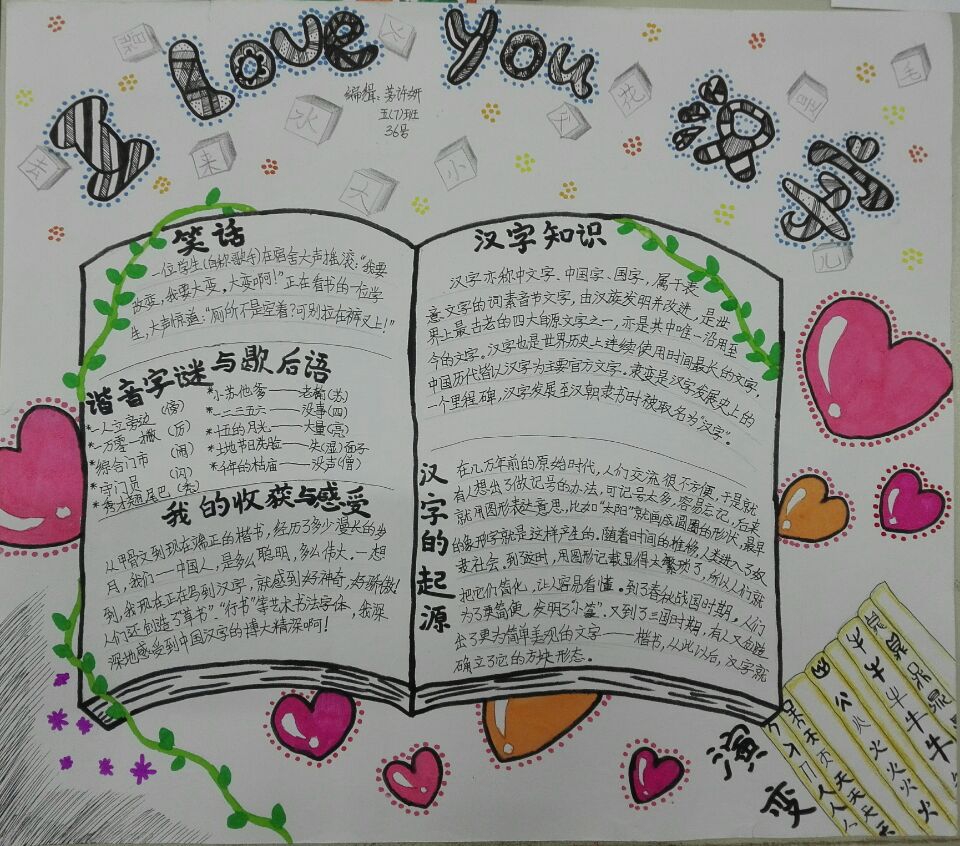 I Love You 汉字
编辑：
五(7)班
36号
去
来
水
人
火
小
天
花
毛
儿
笑话
一位学生(自称歌手)在宿舍大声摇滚：“我要
改变，我要大变，大变啊！”正在看书的一位学
生，大声惊道：“厕所不是空着？可别拉在裤叉上！”
谐音字谜与歇后语
*一人立旁边 (倚)
*一万零一撇 (厉)
*综合门市 (闹)
*守门员 (闪)
*秀才翘尾巴 (秃)
*小苏他爹——老输(苏)
*一二三五六——没事(四)
*十五的月光——大量(亮)
*土地爷洗脸——失(湿)面子
*千年的枯庙——没声(僧)
我的收获与感受
从甲骨文到现在端正的楷书，经历了多少漫长的岁
月，我们——中国人，是多么聪明，多么伟大。一想
到，我现在正在写到汉字，就感到好神奇，好骄傲！
人们还创造了“草书”“行书”等艺术书法字体，我深
深地感受到中国汉字的博大精深啊！
汉字知识
汉字亦称中文字、中国字、国字，属于表
意文字的词素音节文字，由汉族发明并改进，是世
界上最古老的四大自源文字之一，亦是其中唯一沿用至
今的文字。汉字也是世界历史上连续使用时间最长的文字，
中国历代皆以汉字为主要官方文字。隶变是汉字发展史上的
一个里程碑，汉字发展至汉朝隶书时被取名为“汉字”。
汉字的起源
在几万年前的原始时代，人们交流很不方便，于是就
有人想出了做记号的办法，可记号太多，容易忘记，后来
就用图形表达意思，比如“太阳”就画成圆圈的形状，最早
的象形字就是这样产生的。随着时间的推移，人类进入了奴
隶社会。到这时，用图形记载显得太繁琐了，所以人们就
把它们简化，让人容易看懂。到了春秋战国时期，人们
为了更简便，发明了“小篆”。又到了三国时期，有人又创造
出了更为简单美观的文字——楷书，从此以后，汉字就
确立了它的方块形态。
演变
人
天
火
牛